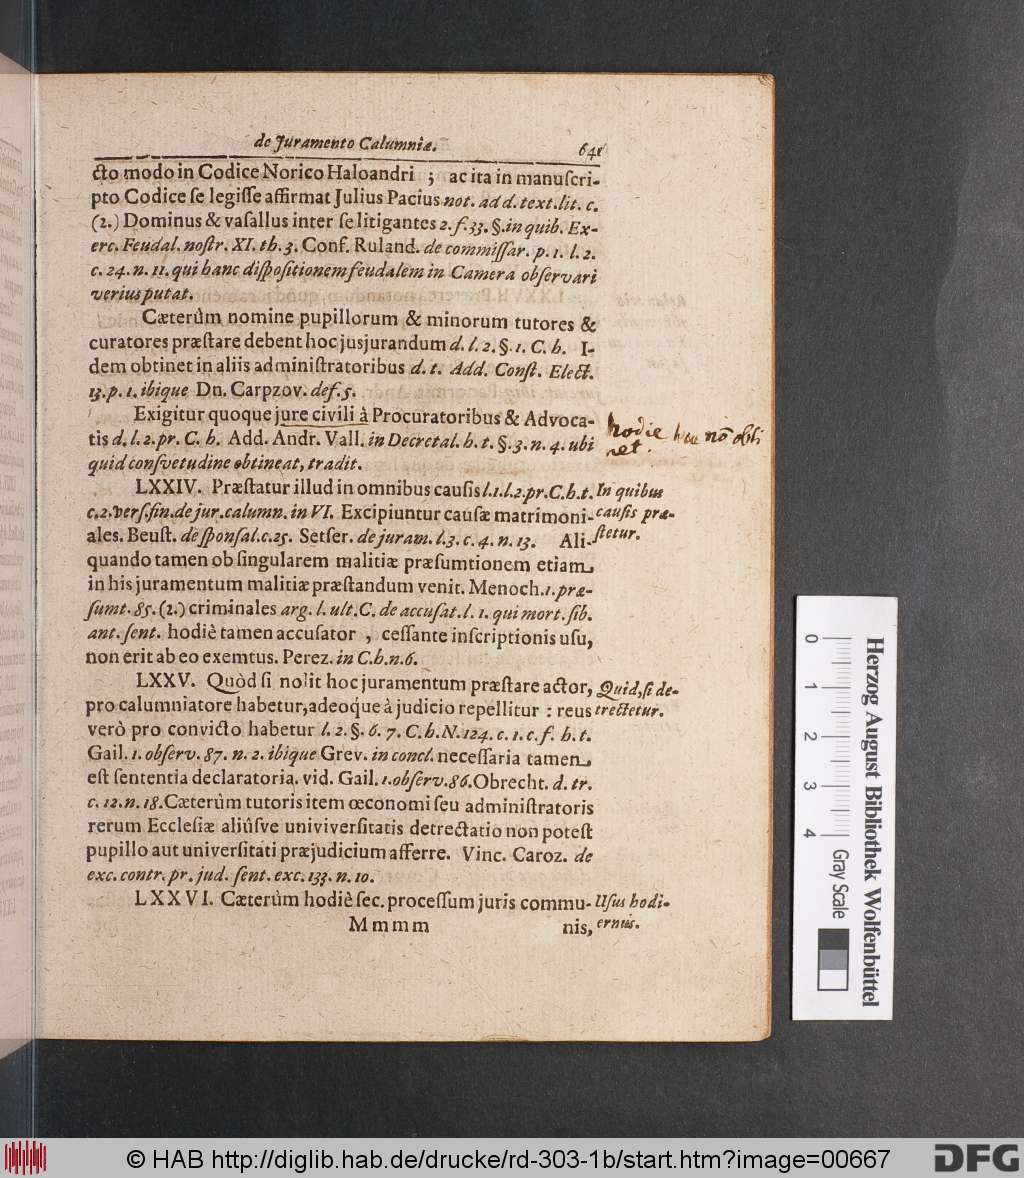 de Juramento Calumniæ. 641
cto modo in Codice Norico Haloandri ; ac ita in manuſcri-
pto Codice ſe legiſſe affirmat Julius Pacius not. ad d. text. lit. c.
(2.) Dominus & vaſallus inter ſe litigantes 2. f. 33. §. in quib. Ex-
erc. Feudal. noſtr. XI. th. 3. Conf. Ruland. de commiſſar. p. 1. l. 2.
c. 24. n. 11. qui hanc diſpoſitionem feudalem in Camera obſervari
verius putat.
Cæterùm nomine pupillorum & minorum tutores &
curatores præſtare debent hoc jusjurandum d. l. 2. §. 1. C. h. I-
dem obtinet in aliis adminiſtratoribus d. t. Add. Conſt. Elect.
13. p. 1. ibique Dn. Carpzov. def. 5.
Exigitur quoque jure civili à Procuratoribus & Advoca-
tis d. l. 2. pr. C. h. Add. Andr. Vall. in Decretal. h. t. §. 3. n. 4. ubi
quid conſvetudine obtineat, tradit.
hodie hoc nō obti
net.
LXXIV. Præſtatur illud in omnibus cauſis l. 1. l. 2. pr. C. h. t.
c. 2. verſ. fin. de jur. calumn. in VI. Excipiuntur cauſæ matrimoni-
ales. Beuſt. de ſponſal. c. 25. Setſer. de juram. l. 3. c. 4. n. 13. Ali-
quando tamen ob ſingularem malitiæ præſumtionem etiam
in his juramentum malitiæ præſtandum venit. Menoch. 1. præ-
ſumt. 85. (2.) criminales arg. l. ult. C. de accuſat. l. 1. qui mort. ſib.
ant. ſent. hodiè tamen accuſator , ceſſante inſcriptionis uſu,
non erit ab eo exemtus. Perez. in C. h. n. 6.
In quibus
cauſis præ-
ſtetur.
LXXV. Quòd ſi nolit hoc juramentum præſtare actor,
pro calumniatore habetur, adeoque à judicio repellitur : reus
verò pro convicto habetur l. 2. §. 6. 7. C. h. N. 124. c. 1. c. f. h. t.
Gail. 1. obſerv. 87. n. 2. ibique Grev. in concl. neceſſaria tamen
eſt ſententia declaratoria. vid. Gail. 1. obſerv. 86. Obrecht. d. tr.
c. 12. n. 18. Cæterùm tutoris item œconomi ſeu adminiſtratoris
rerum Eccleſiæ aliûſve univiverſitatis detrectatio non poteſt
pupillo aut univerſitati præjudicium afferre. Vinc. Caroz. de
exc. contr. pr. jud. ſent. exc. 133. n. 10.
Quid, ſi de-
trectetur.
LXXVI. Cæterùm hodiè ſec. proceſſum juris commu-
Uſus hodi-
ernus.
M m m m nis,
0 1 2 3 4 Gray Scale
Herzog August Bibliothek Wolfenbüttel
© HAB http://diglib.hab.de/drucke/rd-303-1b/start.htm?image=00667
DFG